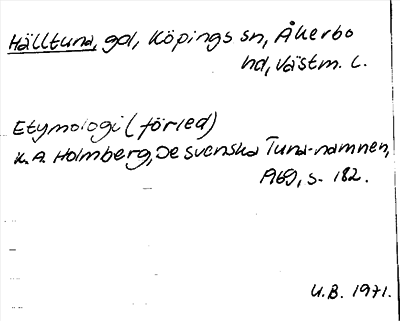 Hälltuna, gd, Köpings sn, Åkerbo
hd, Västm. l.
Etymologi (förled)
K.A. Holmberg, De svenska Tuna-namnen,
1969, s. 182.
U.B. 1971.